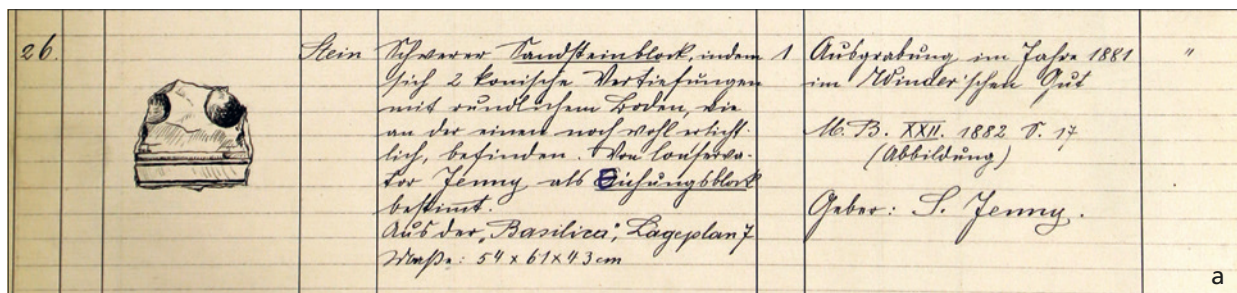 26.
Stein
Schwerer Sandsteinblock, indem
sich 2 konische Vertiefungen
mit rundlichem Boden, wie
an der einen noch wohl ersicht-
lich, befinden. Von Conserva-
tor Jenny als Eichungsblock
bestimt.
Aus der „Basilica“, Lageplan 7
Maße: 54 x 61 x 43 cm
1
Ausgrabung im Jahre 1881
im Winder'schen Gut
M. B. XXII. 1882 S. 17
(Abbildung)
Geber: S. Jenny.
"
a